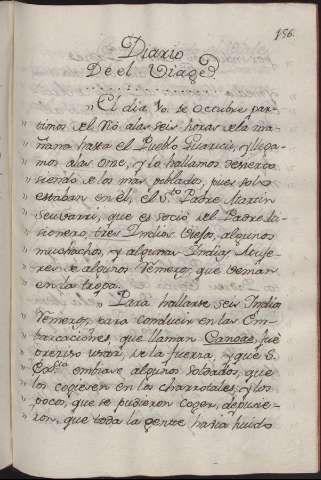 156.
Diario
De el Viage.
"El dia 10. de Octubre par-
" timos del Rio a las seis horas de la ma-
" ñana hasta el Pueblo Guaricu, y llega-
" mos alas Onze, y lo hallamos desierto
" siendo de los mas poblados, pues solo
" estaban en él, el Padre Martin
" que es socio del Padre Mi-
" sionero, tres Indios viejos, algunos
" muchachos, y algunas Indias Muge-
" res de algunos Remeros, que venian
" en la tropa.
" Para hallarse seis Indios
" Remeros, para conducir en las Em-
" barcaciones, que llaman Canoas, fué
" preciso usar, de la fuerza, y que S.
" Exª embiase algunos soldados, que
" los cogiesen en las charrotales, y los
" pocos, que se pudieron coger, depusie-
" ron, que toda la gente havia huido